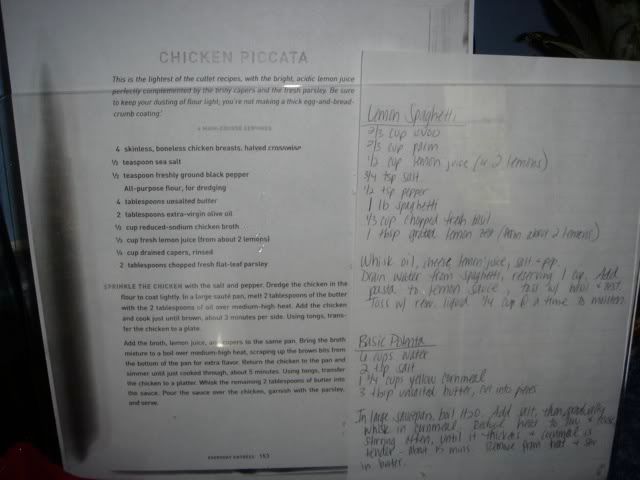 CHICKEN PICCATA
This is the lightest of the cutlet recipes, with the bright, acidic lemon juice
perfectly complemented by the briny capers and the fresh parsley. Be sure
to keep your dusting of flour light; you're not making a thick egg-and-bread-
crumb coating!
4 MAIN-COURSE SERVINGS
4 skinless, boneless chicken breasts, halved crosswise
½ teaspoon sea salt
½ teaspoon freshly ground black pepper
All-purpose flour, for dredging
4 tablespoons unsalted butter
2 tablespoons extra-virgin olive oil
½ cup reduced-sodium chicken broth
⅓ cup fresh lemon juice (from about 2 lemons)
¼ cup drained capers, rinsed
2 tablespoons chopped fresh flat-leaf parsley
SPRINKLE THE CHICKEN with the salt and pepper. Dredge the chicken in the
flour to coat lightly. In a large sauté pan, melt 2 tablespoons of the butter
with the 2 tablespoons of oil over medium-high heat. Add the chicken
and cook just until brown, about 3 minutes per side. Using tongs, trans-
fer the chicken to a plate.
Add the broth, lemon juice, and capers to the same pan. Bring the broth
mixture to a boil over medium-high heat, scraping up the brown bits from
the bottom of the pan for extra flavor. Return the chicken to the pan and
simmer until just cooked through, about 5 minutes. Using tongs, transfer
the chicken to a platter. Whisk the remaining 2 tablespoons of butter into
the sauce. Pour the sauce over the chicken, garnish with the parsley,
and serve.
EVERYDAY ENTREES 153
Lemon Spaghetti
2/3 cup evoo
2/3 cup parm
1/2 cup lemon juice (~ 2 lemons)
3/4 tsp salt
1/2 tsp pepper
1 lb spaghetti
1/3 cup chopped fresh basil
1 tbsp grated lemon zest (from about 2 lemons)
Whisk oil, cheese, lemon juice, salt + pep.
Drain water from spaghetti, reserving 1 cup. Add
pasta to lemon sauce, toss w/ basil + zest.
Toss w/ rem. liquid 1/4 cup @ a time to moisten.
Basic Polenta
6 cups water
2 tsp salt
1 3/4 cups yellow cornmeal
3 tbsp unsalted butter, cut into pieces
In large saucepan boil H2O. Add salt, then gradually
whisk in cornmeal. Reduce heat to low + cook,
stirring often, until it thickens + cornmeal is
tender - about 15 mins. Remove from heat + stir
in butter.